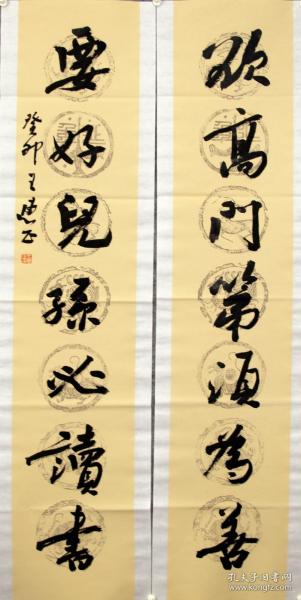 欲高門第須為善
要好兒孫必讀書
癸卯
孔夫子旧书网